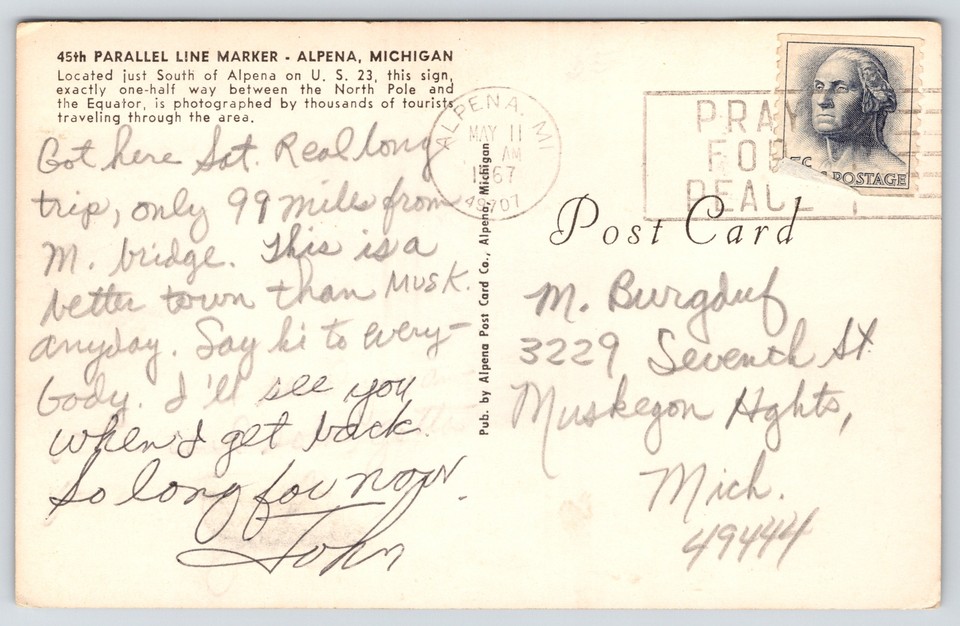 45th PARALLEL LINE MARKER - ALPENA, MICHIGAN
Located just South of Alpena on U. S. 23, this sign,
exactly one-half way between the North Pole and
the Equator, is photographed by thousands of tourists
traveling through the area.
Got here Sat. Real long
trip, only 99 miles from
M. bridge. This is a
better town than MUSK.
anyday. Say hi to every-
body. I'll see you
when I get back.
So long for now.
John
Pub. by Alpena Post Card Co., Alpena, Michigan
ALPENA, MI
MAY 11
AM
1967
49707
PRAY
FOR
PEACE
POSTAGE
Post Card
M. Burgduf
3229 Seventh St.
Muskegon Hghts,
Mich.
49444